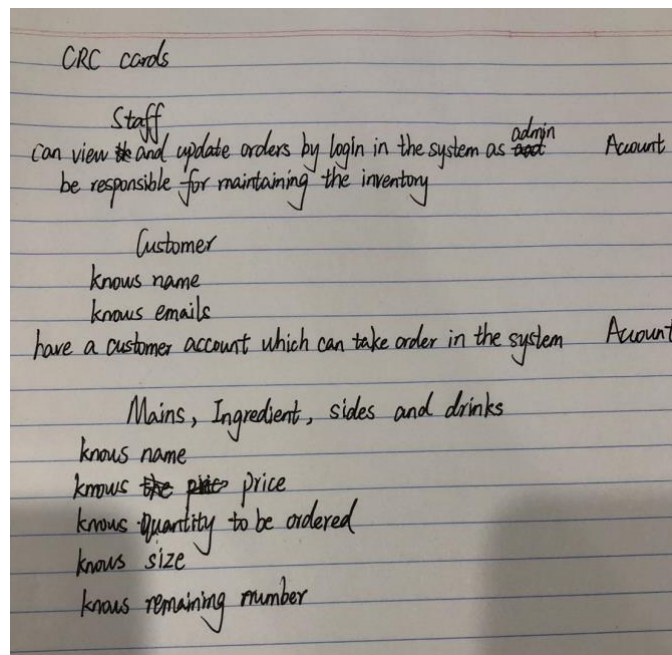 CRC cards
Staff
can view and update orders by login in the system as admin Account
be responsible for maintaining the inventory
Customer
knows name
knows emails
have a customer account which can take order in the system Account
Mains, Ingredient, sides and drinks
knows name
knows price
knows quantity to be ordered
knows size
knows remaining number